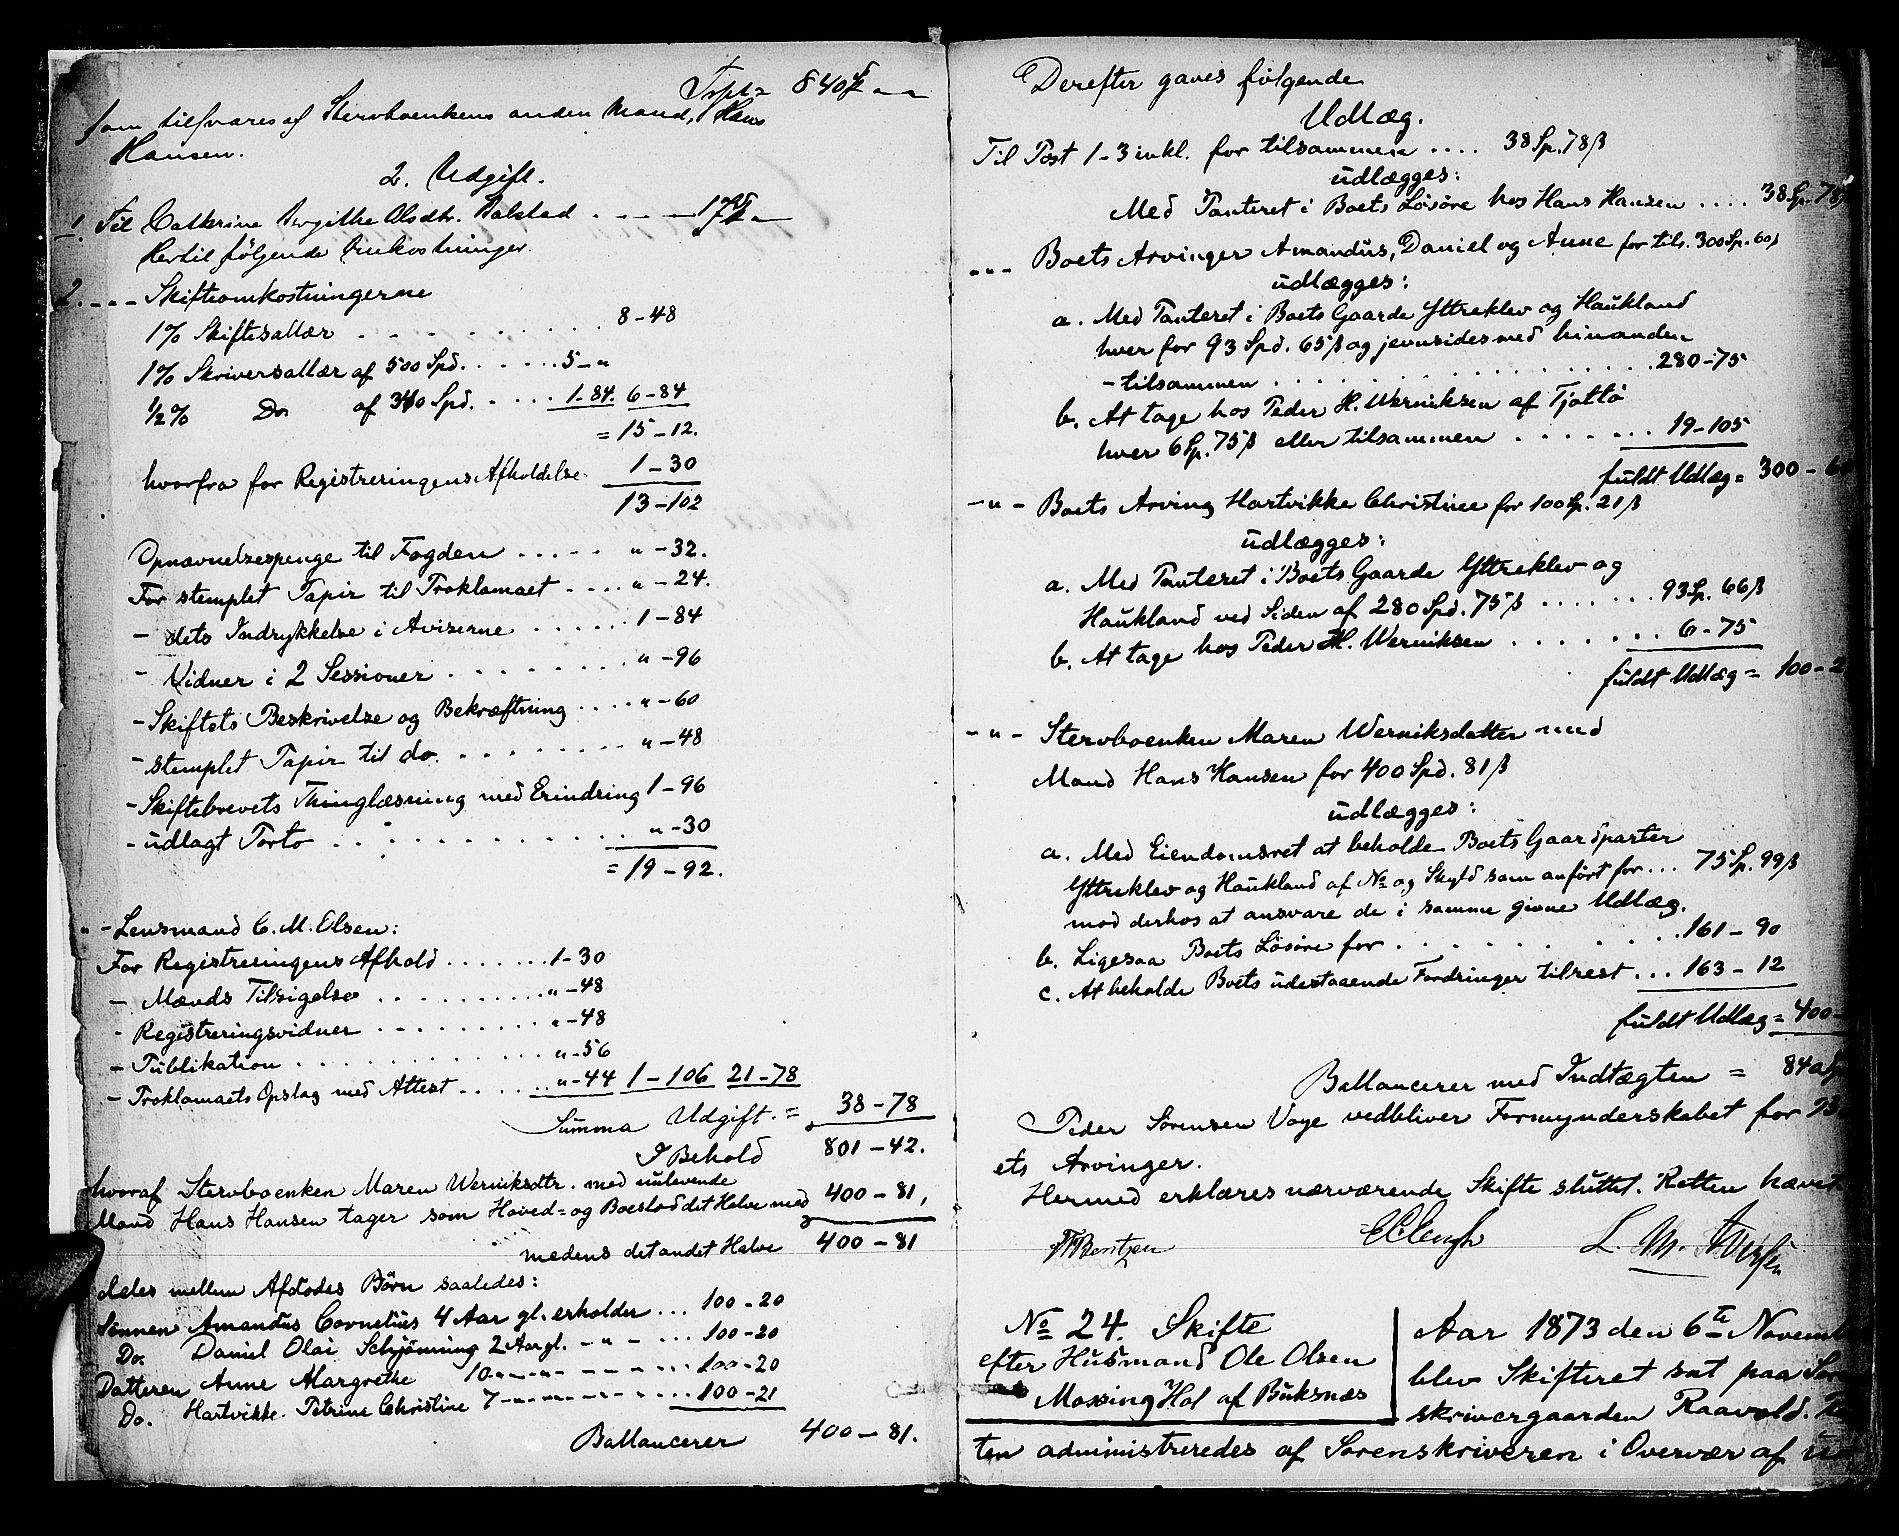 Trspt = 840 Sp " "
som tilsvares af Stervboenkens anden Mand, Hans
Hansen.
2. Udgift.
1. Til Cathrine Birgithe Olsdtr. Balstad . . . . 17 Sp "
Hertil følgende Omkostninger.
2. - " - Skifteomkostningerne
1% Skiftesallær . . . . . . 8 - 48
1% Skriversallær af 500 Spd. . . . . . . 5 - "
1/2% Do. af 340 Spd. . . . . 1 - 84. 6 - 84
= 15 - 12.
hvorfra for Registreringens Afholdelse. 1 - 30
13 - 102
Opnævnelsespenge til Fogden . . . . . " - 32.
For stemplet Papir til Proklamaet . . . . " - 24.
- dets Indrykkelse i Aviserne . . . . . . 1 - 84
- Vidner i 2 Sessioner . . . . . . . . " - 96
- Skiftets Beskrivelse og Bekræftning . . . . " - 60
- stemplet Papir til do. . . . . . . . . " - 48
- Skiftebrevets Thinglæsning med Erindring 1 - 96
- udlagt Porto . . . . . . . . . . " - 30
= 19 - 92.
" - Lensmand C. M. Olsen:
For Registreringens Afhold . . . . . . . 1 - 30
- Mænds Tilsigelse . . . . . . . . . . " - 48
- Registreringsvidner . . . . . . . . . " - 48
- Publikation . . . . . . . . . . . . " - 56
- Proklamaets Opslag med Attest . . . . . . " - 44 1 - 106 21 - 78
Summa Udgift. = 38 - 78
I Behold 801 - 42.
hvoraf Stervboenken Maren Werniksdtr. med nulevende
Mand Hans Hansen tager som Hoved= og Boeslod det Halve med 400 - 81,
medens det andet Halve 400 - 81
deles mellem Afdødes Børn saaledes:
Sønnen Amandus Cornelius 4 Aar gl. erholder . . . 100 - 20
Do. Daniel Olai Schjønning 2 Aar gl. - " - . . . 100 - 20
Datteren Anne Margrethe 10 - " - " - " - . . . 100 - 20
Do. Hartvikke Petrine Christine 7 - " - " - " - . . . . 100 - 21
Ballancerer 400 - 81.
Derefter gaves følgende
Udlæg.
Til Post 1 - 3 inkl. for tilsammen . . . . 38 Sp. 78 ß
udlægges:
Med Panteret i Boets Løsøre hos Hans Hansen . . . . 38 Sp. 78 ß
- " - Boets Arvinger Amandus, Daniel og Anne for tils. 300 Sp. 60 ß
udlægges:
a. Med Panteret i Boets Gaarde Yttreklev og Haukland
hver for 93 Spd. 65 ß og jevnsides med hinanden
- tilsammen . . . . . . . . . . . . . . . . 280 - 75
b. At tage hos Peder H. Werniksen af Tjøttø
hver 6 Sp. 75 ß eller tilsammen . . . . . . . 19 - 105
fuldt Udlæg = 300 - 60
- " - Boets Arving Hartvikke Christine for 100 Sp. 21 ß
udlægges:
a. Med Panteret i Boets Gaarde Yttreklev og
Haukland ved Siden af 280 Spd. 75 ß . . . . . . . 93 Sp. 66 ß
b. At tage hos Peder H. Werniksen . . . . . . . 6 - 75
fuldt Udlæg = 100 - 2
- " - Stervboenken Maren Werniksdatter med
Mand Hans Hansen for 400 Spd. 81 ß
udlægges:
a. Med Eiendomsret at beholde Boets Gaardparter
Yttreklev og Haukland af No. og Skyld som anført for . . . 75 Sp. 99 ß
mod derhos at ansvare de i samme givne Udlæg.
b. Ligesaa Boets Løsøre for . . . . . . . . . . . . 161 - 90
c. At beholde Boets udestaaende Fordringer tilrest . . . 163 - 12
fuldt Udlæg = 400 -
Ballancerer med Indtægten = 840 Sp
Peder Sørensen Voye vedbliver Formynderskabet for Bo
ets Arvinger.
Hermed erklæres nærværende Skifte sluttet. Retten hævet
Bentzen L. M.
No. 24. Skifte
efter Husmand Ole Olsen
Mossing Hol af Buksnæs
Aar 1873 den 6te Novemb
blev Skifteret sat paa Soren
skrivergaarden Raavold. Ret
ten administreredes af Sorenskriveren i Overvær af